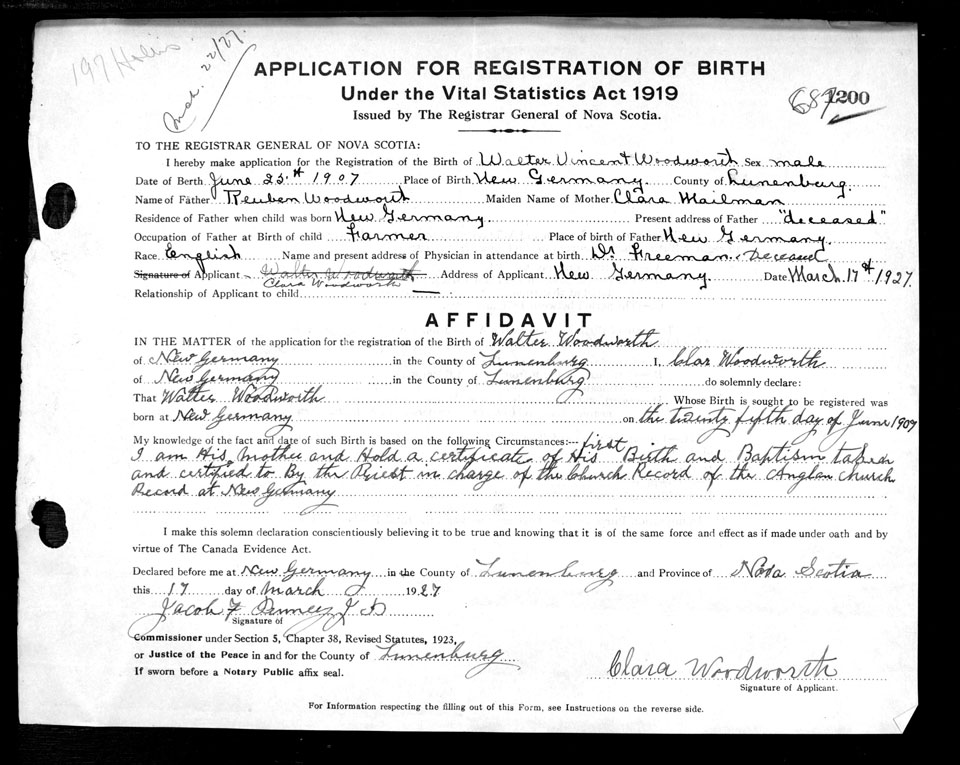 197 Holis
Mch. 22/27.
APPLICATION FOR REGISTRATION OF BIRTH
Under the Vital Statistics Act 1919
Issued by The Registrar General of Nova Scotia.
1200
TO THE REGISTRAR GENERAL OF NOVA SCOTIA:
I hereby make application for the Registration of the Birth of Walter Vincent Woodworth Sex male
Date of Berth June 25th 1907 Place of Birth New Germany. County of Lunenburg.
Name of Father Reuben Woodworth Maiden Name of Mother Clara Mailman
Residence of Father when child was born New Germany Present address of Father "deceased"
Occupation of Father at Birth of child Farmer Place of birth of Father New Germany.
Race English Name and present address of Physician in attendance at birth Dr Freeman. Deceased
Signature of Applicant Walter Woodworth Address of Applicant. New Germany. Date March 17th 1927.
Clara Woodworth
Relationship of Applicant to child
AFFIDAVIT
IN THE MATTER of the application for the registration of the Birth of Walter Woodworth
of New Germany in the County of Lunenburg I, Clar Woodworth
of New Germany in the County of Lunenburg do solemnly declare:
That Walter Woodworth Whose Birth is sought to be registered was
born at New Germany on the twenty fifth day of June 1907
My knowledge of the fact and date of such Birth is based on the following Circumstances:— first
I am His Mother and Hold a certificate of His Birth and Baptism taken
and certified to By the Priest in charge of the Church Record of the Anglan Church
Record at New Germany
I make this solemn declaration conscientiously believing it to be true and knowing that it is of the same force and effect as if made under oath and by
virtue of The Canada Evidence Act.
Declared before me at New Germany in the County of Lunenburg and Province of Nova Scotia
this 17 day of March 1927
Jacob F
Signature of
Commissioner under Section 5, Chapter 38, Revised Statutes, 1923,
or Justice of the Peace in and for the County of Lunenburg
If sworn before a Notary Public affix seal.
Clara Woodworth
Signature of Applicant.
For Information respecting the filling out of this Form, see Instructions on the reverse side.